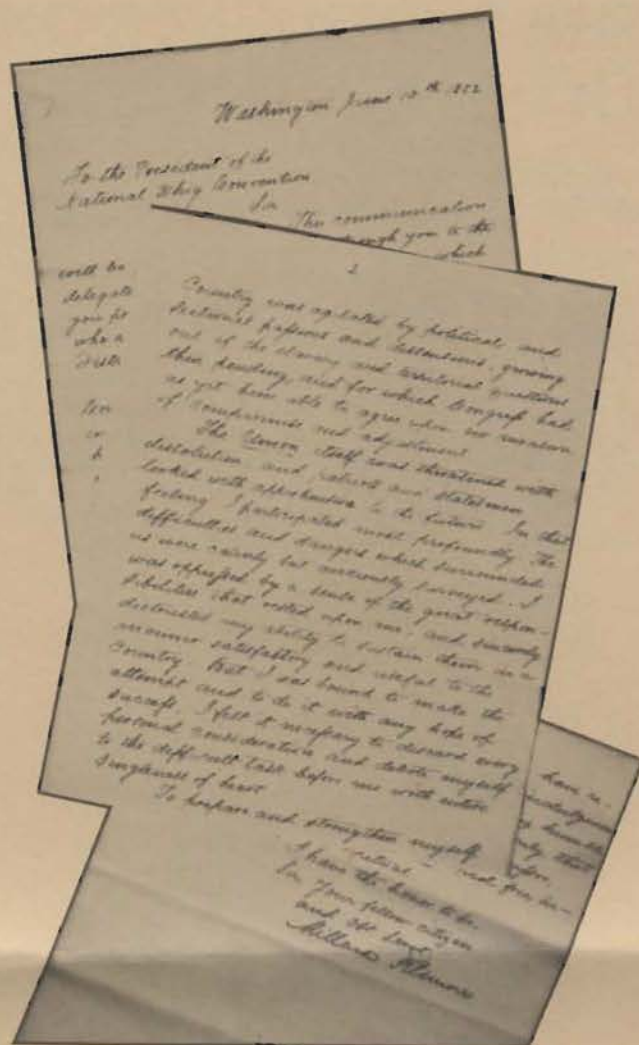 Washington June 10th 1852
To the President of the
National Whig Convention
Sir
This communication
through you to the
which
will be
delegate
you
who a
2
Country was agitated by political and
sectional passions and dissensions, growing
out of the slavery and territorial questions
then pending, and for which Congress had
as yet been able to agree upon no measure
of compromise and adjustment
The Union itself was threatened with
dissolution and patriots and statesmen
looked with apprehension to the future. In that
feeling I participated most profoundly. The
difficulties and dangers which surrounded
us were calmly but anxiously surveyed. I
was oppressed by a sense of the great respon-
sibilities that rested upon me, and sincerely
distrusted my ability to sustain them in a
manner satisfactory and useful to the
Country. But I was bound to make the
attempt and to do it with any hope of
success, I felt it necessary to discard every
personal consideration and devote myself
to the difficult task before me with entire
singleness of heart
To prepare and strengthen myself
have
humble
that
retire
I have the honor to be
Sir Your fellow citizen
and Obt Servt
Millard Fillmore